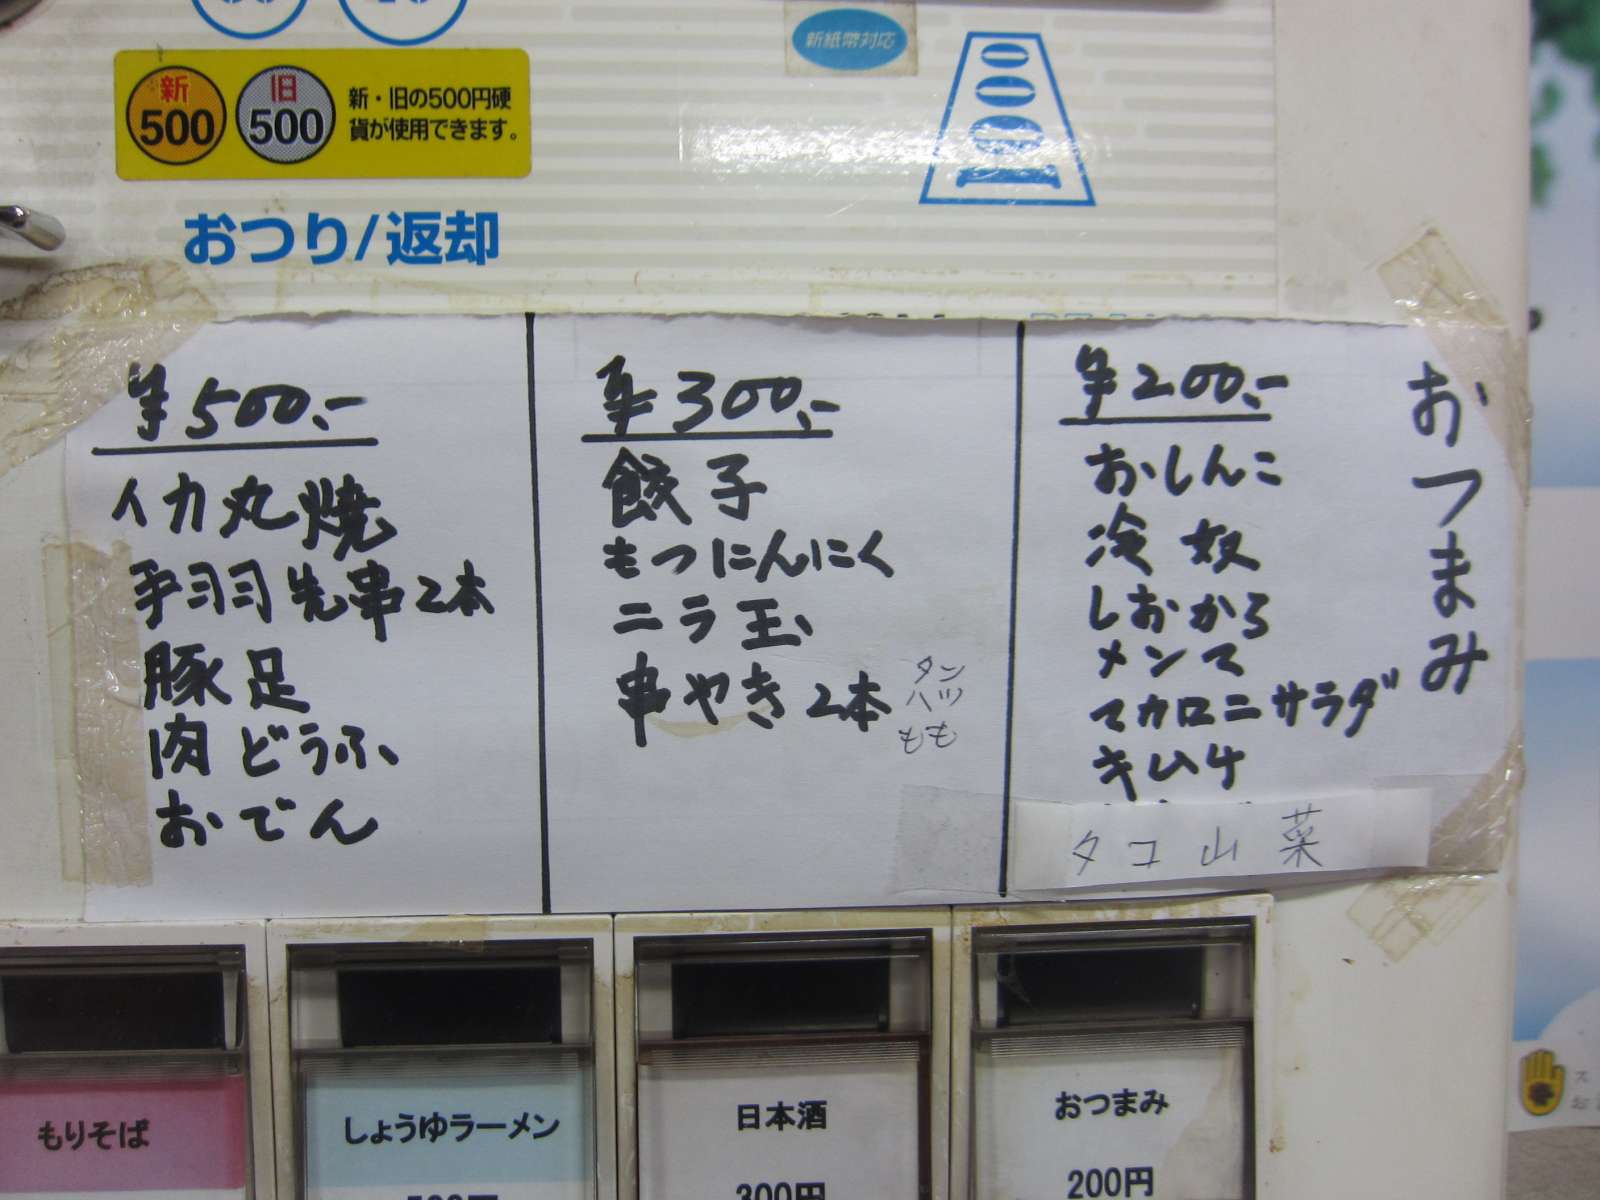 新紙幣対応
1000
新
500
旧
500
新・旧の500円硬
貨が使用できます。
おつり/返却
おつまみ
¥500.-
イカ丸焼
手羽先串2本
豚足
肉どうふ
おでん
¥300.-
餃子
もつにんにく
ニラ玉
串やき2本
タン
ハツ
もも
¥200.-
おしんこ
冷奴
しおから
メンマ
マカロニサラダ
キムチ
タコ山菜
もりそば
しょうゆラーメン
日本酒
300円
おつまみ
200円